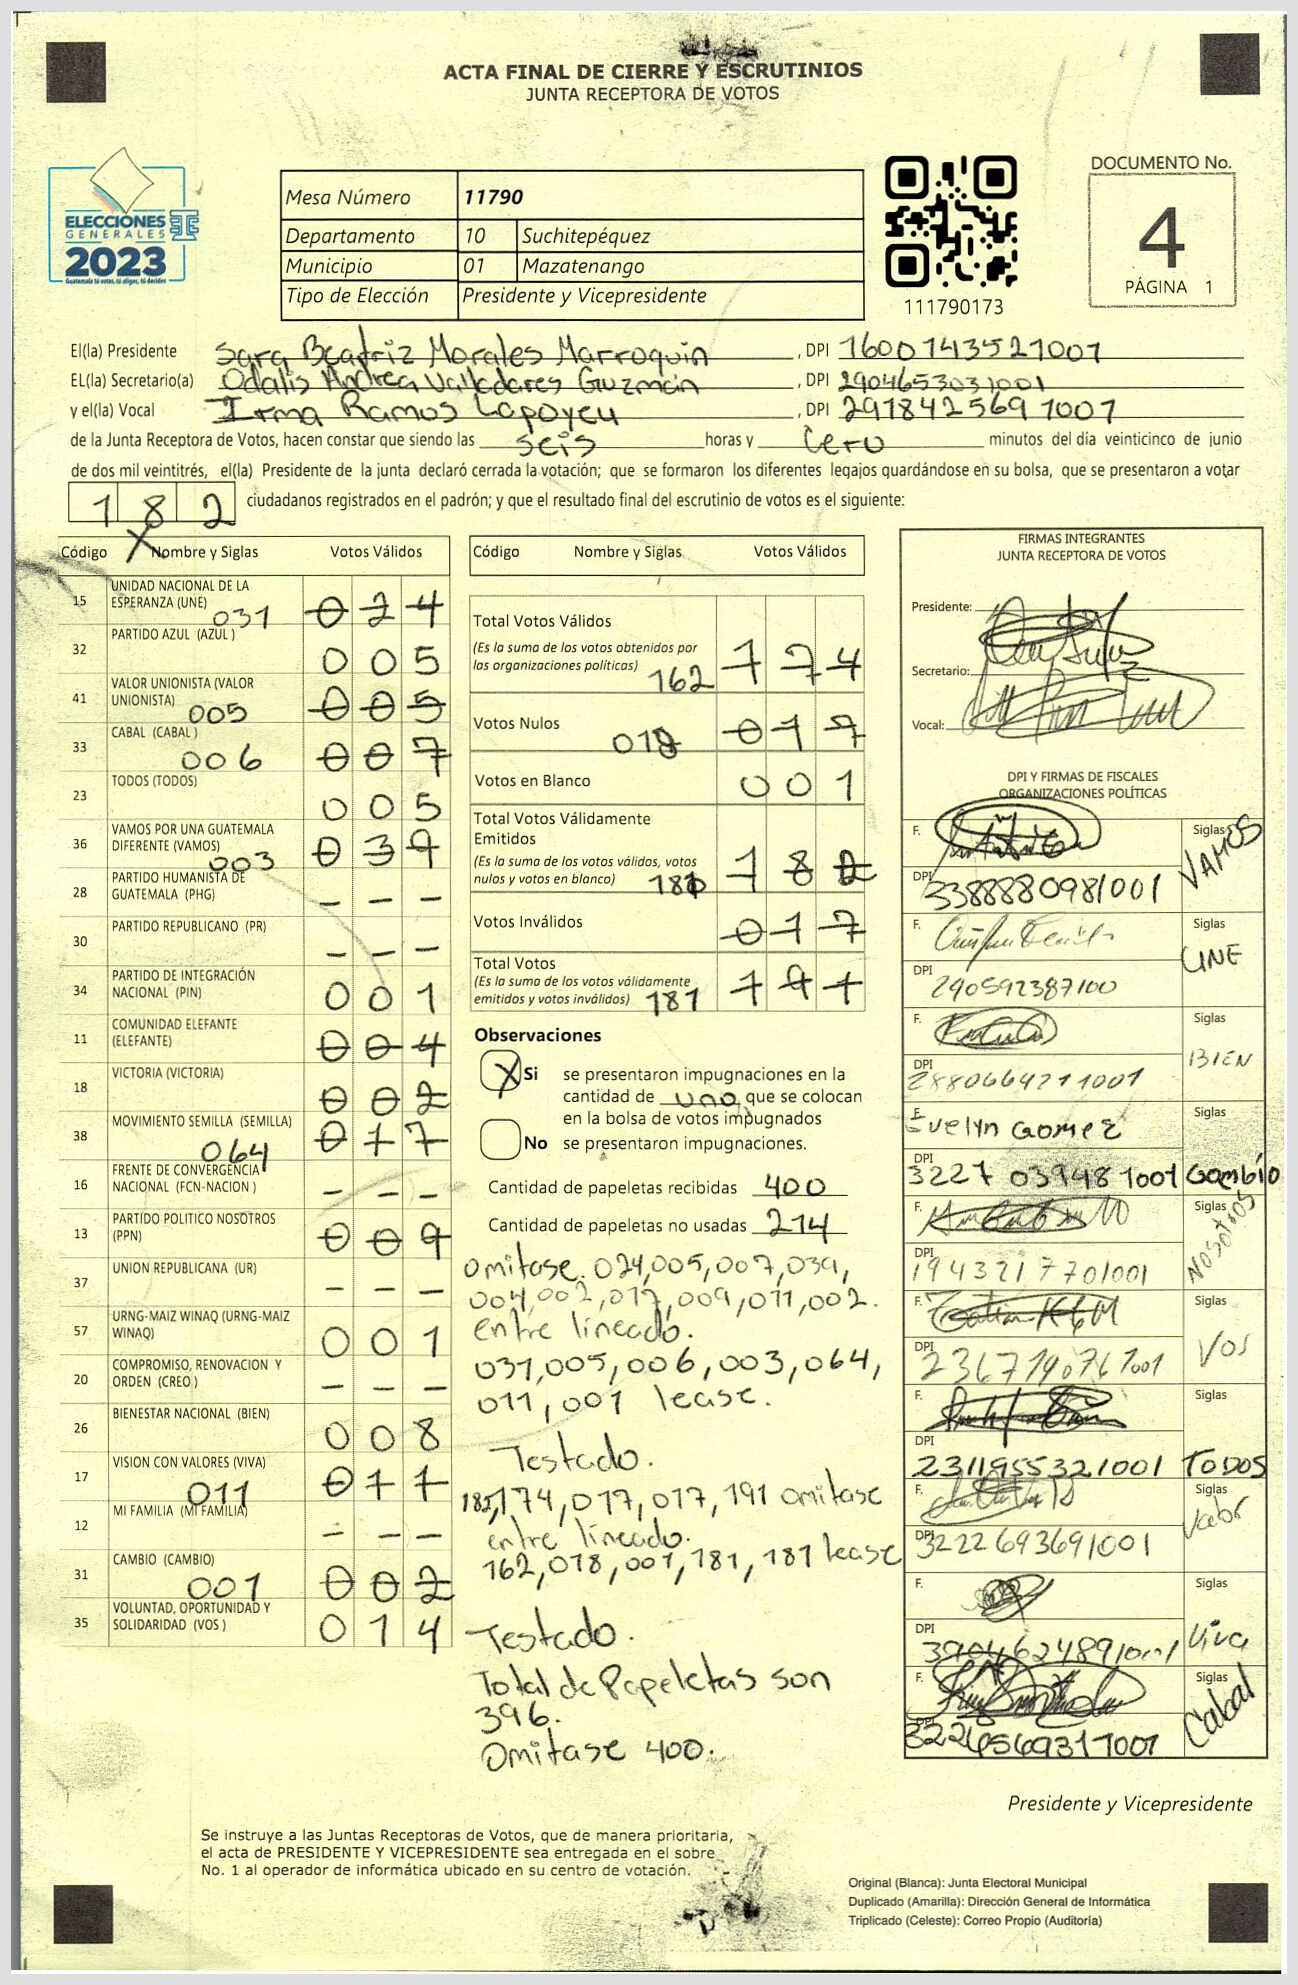 ACTA FINAL DE CIERRE Y ESCRUTINIOS
JUNTA RECEPTORA DE VOTOS
ELECCIONES
GENERALES
2023
Guatemala tú votas, tú eliges, tú decides
Mesa Número 11790
Departamento 10 Suchitepéquez
Municipio 01 Mazatenango
Tipo de Elección Presidente y Vicepresidente
111790173
DOCUMENTO No.
4
PÁGINA 1
El(la) Presidente Sara Beatriz Morales Marroquin, DPI 1600143521001
EL(la) Secretario(a) Odalis Andrea Valladares Guzmán, DPI 2904653031001
y el(la) Vocal Irma Ramos Lapoyeu, DPI 2918425691001
de la Junta Receptora de Votos, hacen constar que siendo las seis horas y cero minutos del día veinticinco de junio
de dos mil veintitrés, el(la) Presidente de la junta declaró cerrada la votación; que se formaron los diferentes legajos quardándose en su bolsa, que se presentaron a votar
182 ciudadanos registrados en el padrón; y que el resultado final del escrutinio de votos es el siguiente:
X
Código Nombre y Siglas Votos Válidos
15 UNIDAD NACIONAL DE LA
ESPERANZA (UNE) 031 024
32 PARTIDO AZUL (AZUL ) 005
41 VALOR UNIONISTA (VALOR
UNIONISTA) 005 005
33 CABAL (CABAL ) 006 007
23 TODOS (TODOS) 005
36 VAMOS POR UNA GUATEMALA
DIFERENTE (VAMOS) 003 039
28 PARTIDO HUMANISTA DE
GUATEMALA (PHG) - - -
30 PARTIDO REPUBLICANO (PR) - - -
34 PARTIDO DE INTEGRACIÓN
NACIONAL (PIN) 001
11 COMUNIDAD ELEFANTE
(ELEFANTE) 004
18 VICTORIA (VICTORIA) 002
38 MOVIMIENTO SEMILLA (SEMILLA) 064 017
16 FRENTE DE CONVERGENCIA
NACIONAL (FCN-NACION ) - - -
13 PARTIDO POLITICO NOSOTROS
(PPN) 009
37 UNION REPUBLICANA (UR) - - -
57 URNG-MAIZ WINAQ (URNG-MAIZ
WINAQ) 001
20 COMPROMISO, RENOVACION Y
ORDEN (CREO ) - - -
26 BIENESTAR NACIONAL (BIEN) 008
17 VISION CON VALORES (VIVA) 011 011
12 MI FAMILIA (MI FAMILIA) - - -
31 CAMBIO (CAMBIO) 001 002
35 VOLUNTAD, OPORTUNIDAD Y
SOLIDARIDAD (VOS ) 014
Código Nombre y Siglas Votos Válidos
Total Votos Válidos
(Es la suma de los votos obtenidos por
las organizaciones políticas) 162 174
Votos Nulos 018 017
Votos en Blanco 001
Total Votos Válidamente
Emitidos
(Es la suma de los votos válidos, votos
nulos y votos en blanco) 181 182
Votos Inválidos 017
Total Votos
(Es la suma de los votos válidamente
emitidos y votos inválidos) 181 191
Observaciones
X Si se presentaron impugnaciones en la
cantidad de uno, que se colocan
en la bolsa de votos impugnados
No se presentaron impugnaciones.
Cantidad de papeletas recibidas 400
Cantidad de papeletas no usadas 214
Omitase. 024,005,007,039,
004,002,017,009,011,002.
entre lineado.
031,005,006,003,064,
011,001 lease.
Testado.
182,174,017,017,191 omitase
entre lineado.
162,018,001,181,181 lease
Testado.
Total de Papeletas son
396.
Omitase 400.
FIRMAS INTEGRANTES
JUNTA RECEPTORA DE VOTOS
Presidente:
Secretario:
Vocal:
DPI Y FIRMAS DE FISCALES
ORGANIZACIONES POLÍTICAS
F. Siglas VAMOS
DPI 3388880981001
F. Siglas UNE
DPI 290592387100
F. Siglas BIEN
DPI 2880664211001
F. Evelyn Gomez Siglas
DPI 3227039481001 Cambio
F. Siglas Nosotros
DPI 1943217701001
F. Siglas VOS
DPI 2367190761001
F. Siglas
DPI 2311955321001 TODOS
F. Siglas Valor
DPI 3222693691001
F. Siglas
DPI 3904624891001 Viva
F. Siglas Cabal
DPI 3226569311001
Presidente y Vicepresidente
Se instruye a las Juntas Receptoras de Votos, que de manera prioritaria,
el acta de PRESIDENTE Y VICEPRESIDENTE sea entregada en el sobre
No. 1 al operador de informática ubicado en su centro de votación.
Original (Blanca): Junta Electoral Municipal
Duplicado (Amarilla): Dirección General de Informática
Triplicado (Celeste): Correo Propio (Auditoría)